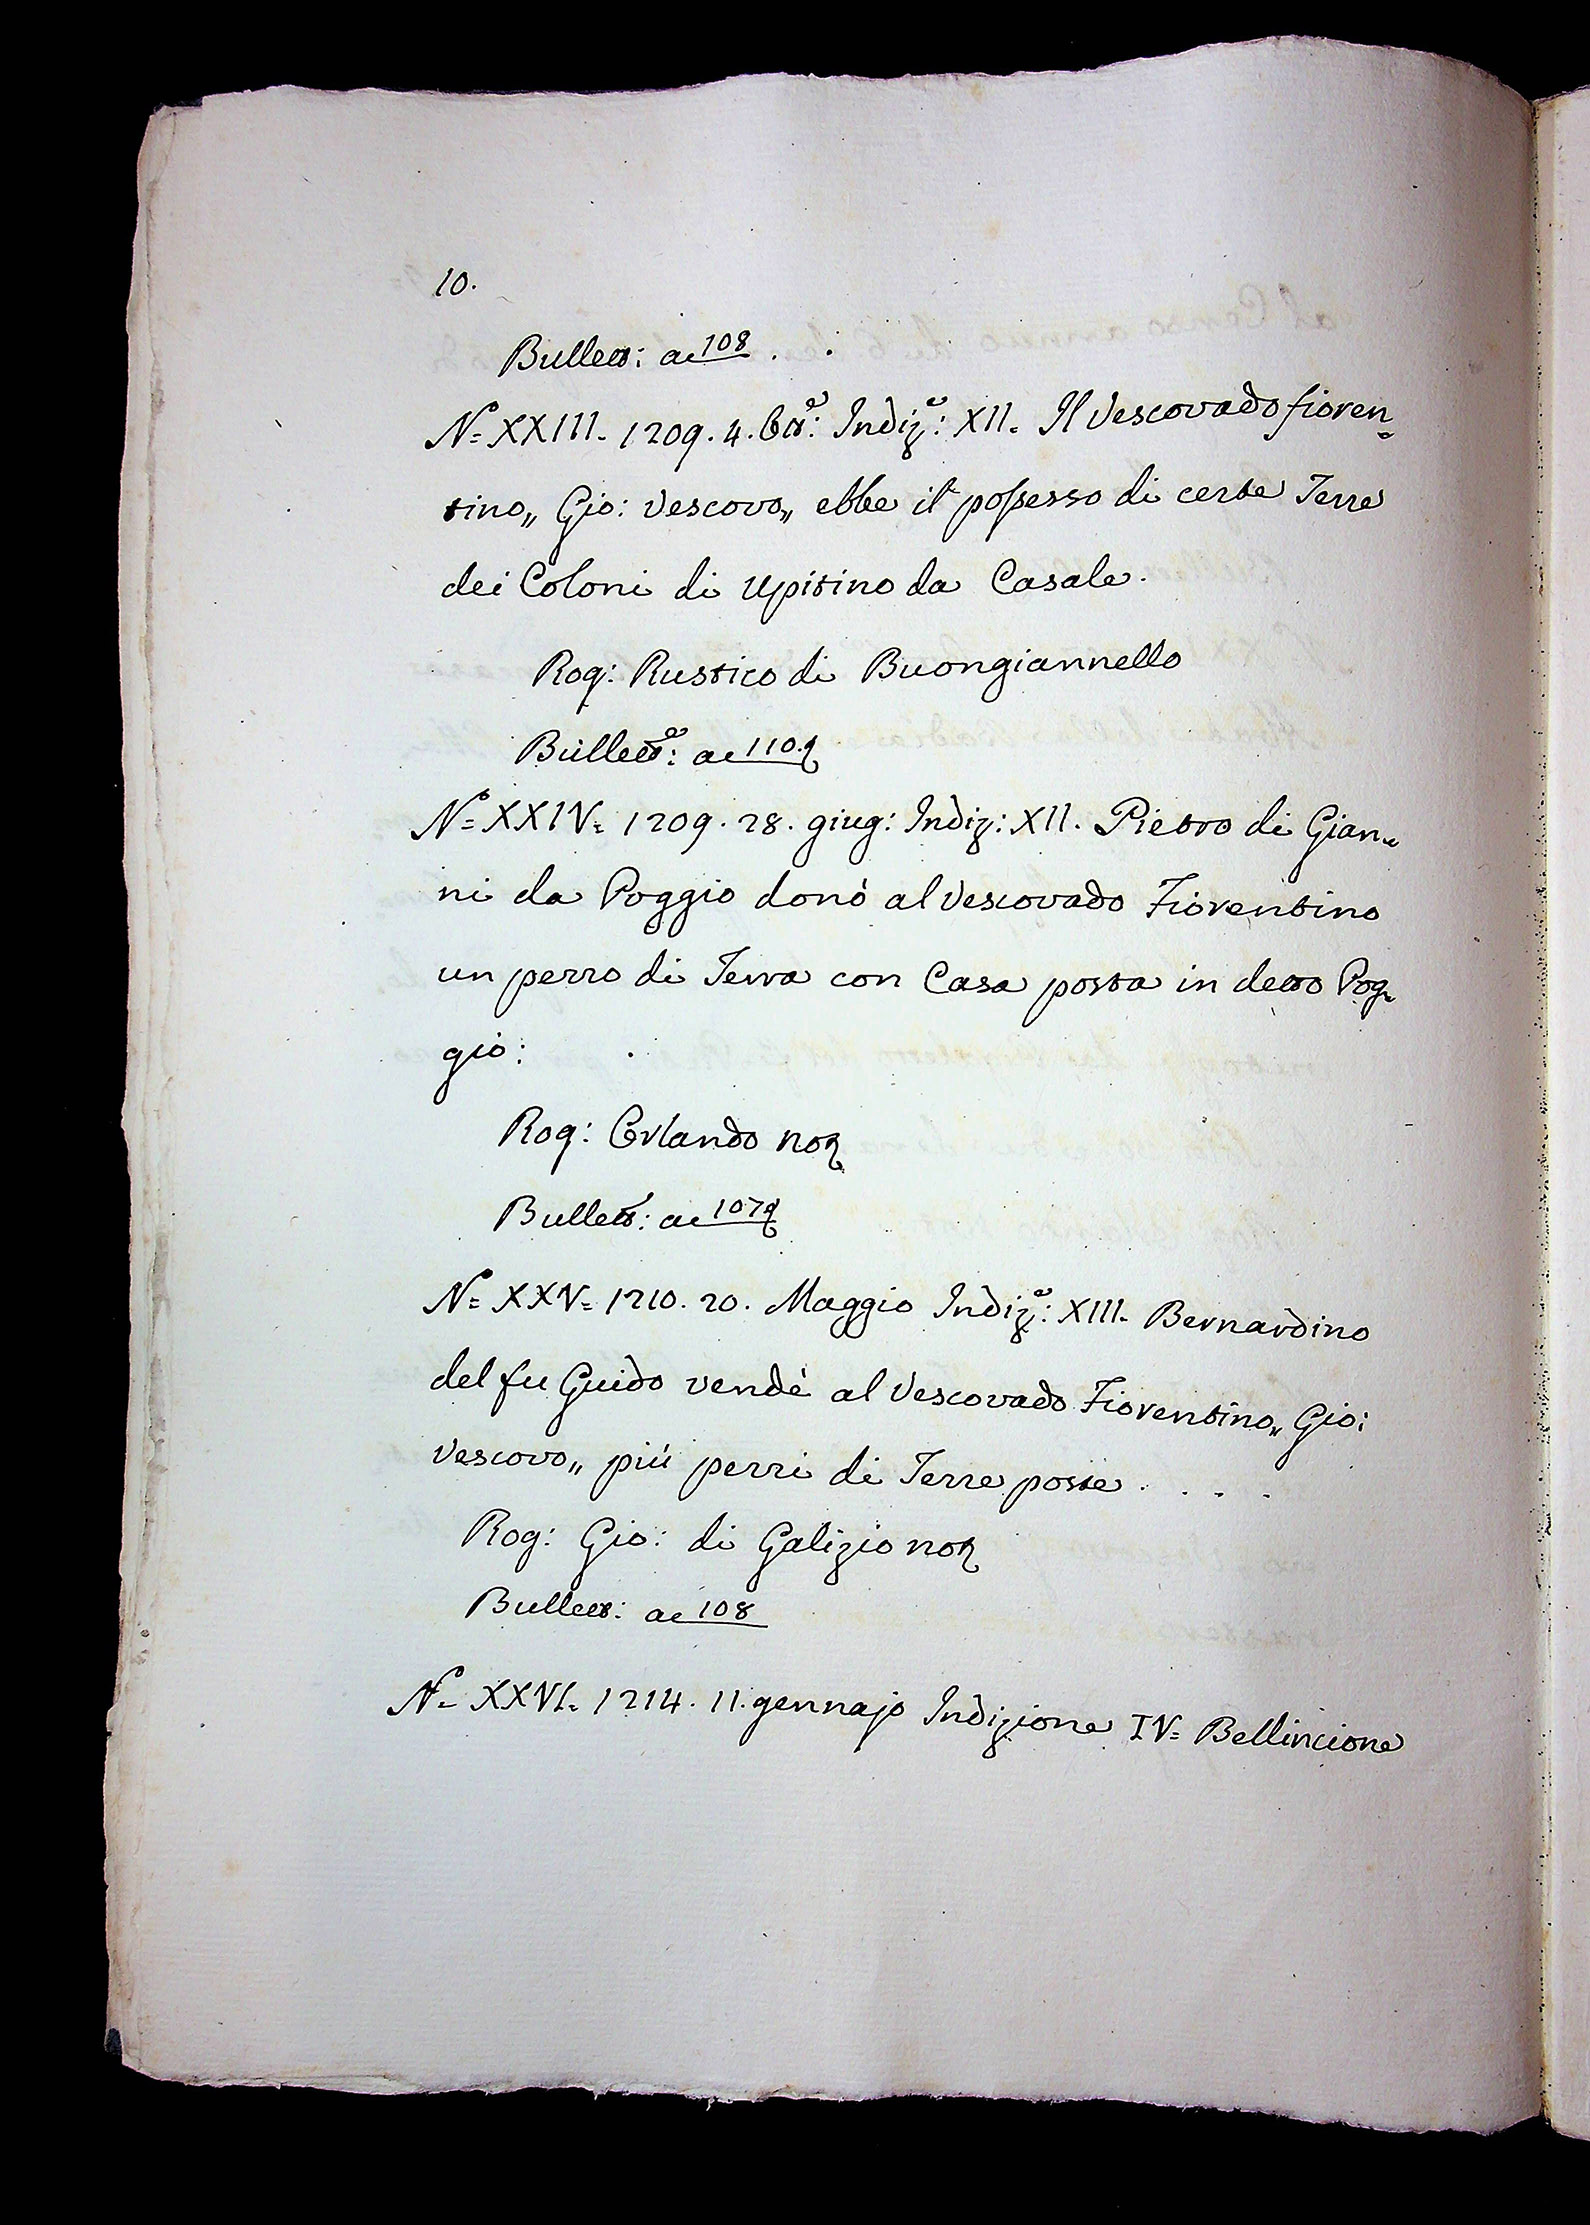 10.
Bullett: ac 108
N.º XXIII. 1209. 4. Ott.e: Indiz.e: XII. Il Vescovado fioren=
tino,, Gio: Vescovo,, ebbe il possesso di certe Terre
dei Coloni di Upitino da Casale.
Rog: Rustico di Buongiannello
Bullett.e: ac 110.
N.º XXIV= 1209. 28. giug: Indiz: XII. Pietro di Gian=
ni da Poggio donò al Vescovado Fiorentino
un pezzo di Terra con Casa posta in detto Pog=
gio:
Rog: Orlando not
Bullett: ac 107
N.º XXV= 1210. 20. Maggio Indiz.e: XIII. Bernardino
del fu Guido vendè al Vescovado Fiorentino,, Gio:
Vescovo,, più pezzi di Terre poste . . . .
Rog: Gio: di Galizio not
Bullett: ac 108
N.º XXVI. 1214. 11. gennajo Indizione IV= Bellincione